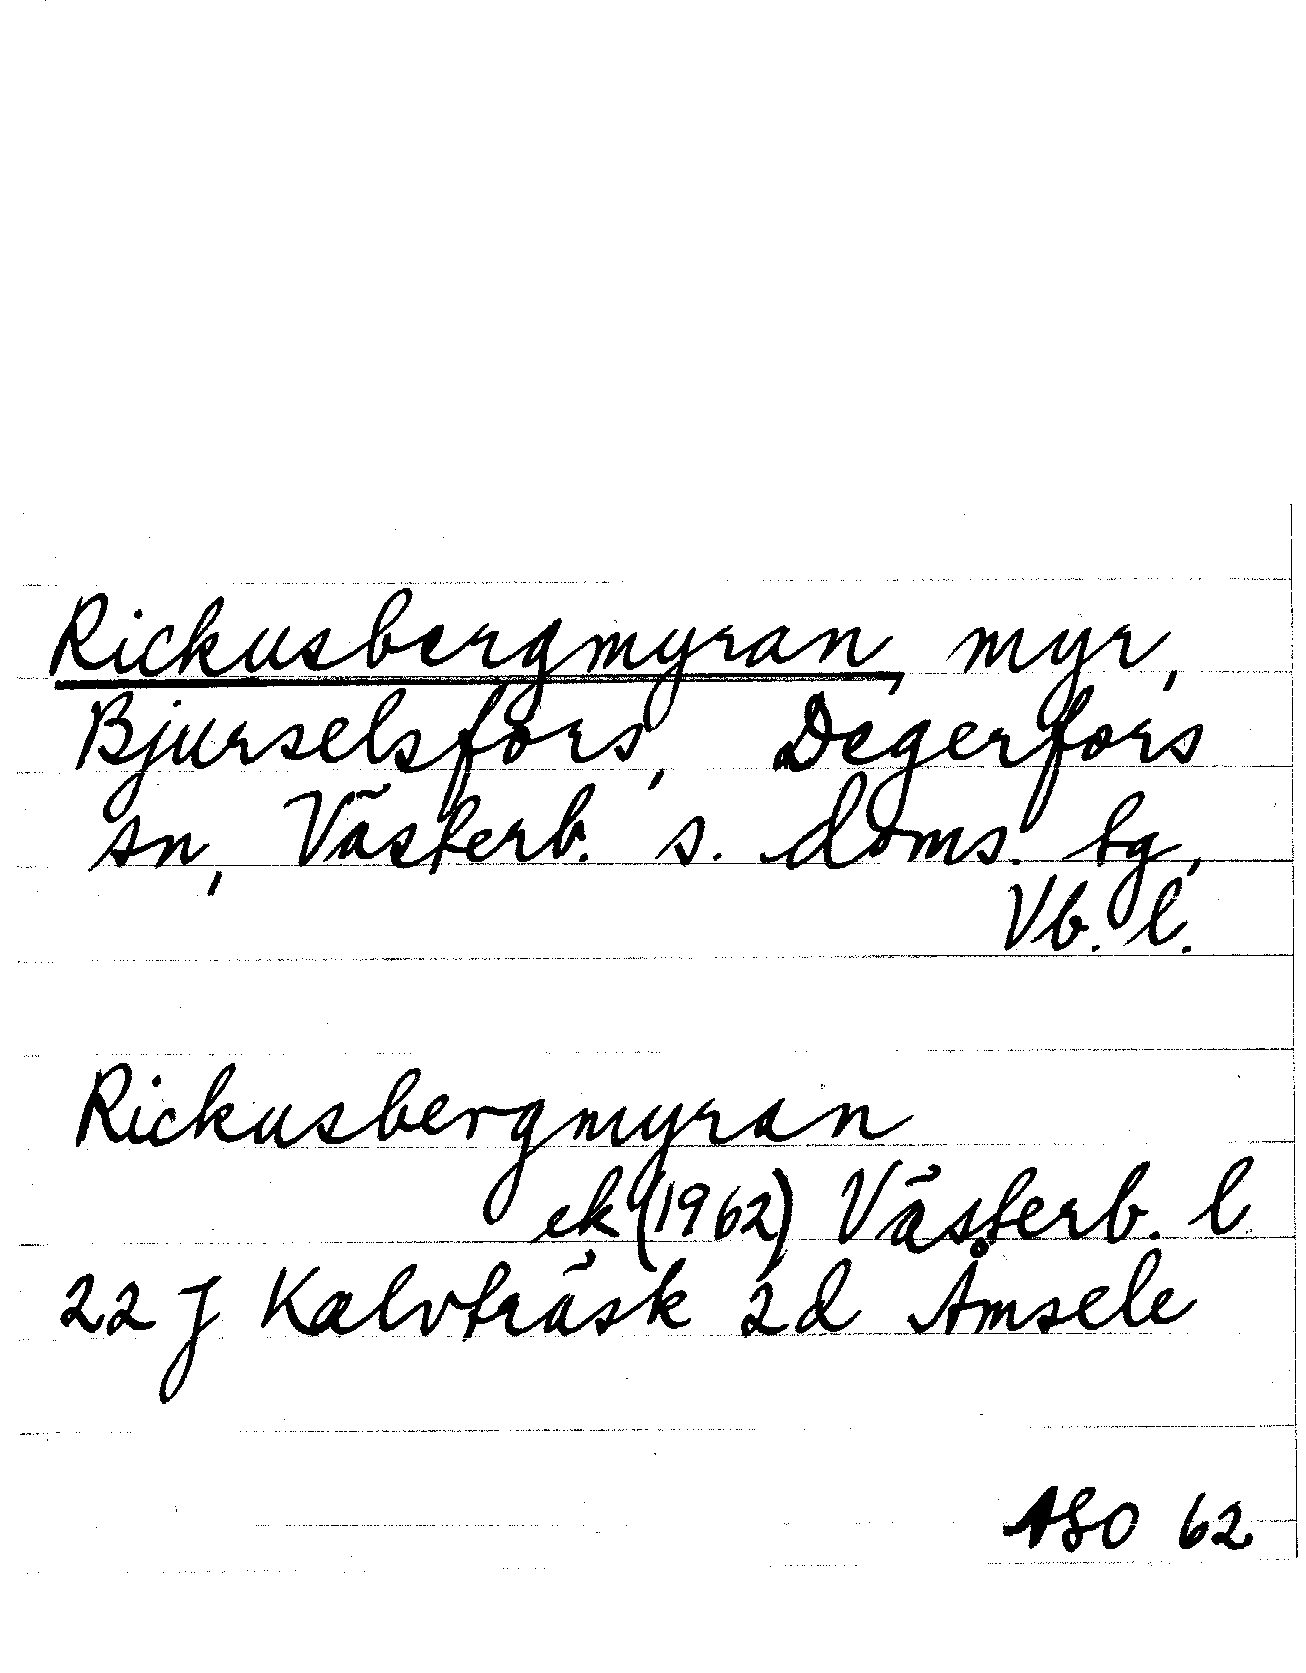 Rickusbergmyran, myr,
Bjurselsfors, Degerfors
sn, Västerb. s. doms. tg,
Vb. l.
Rickusbergmyran
ek (1962) Västerb. l
22 J Kalvträsk 2d Åmsele
ASO 62